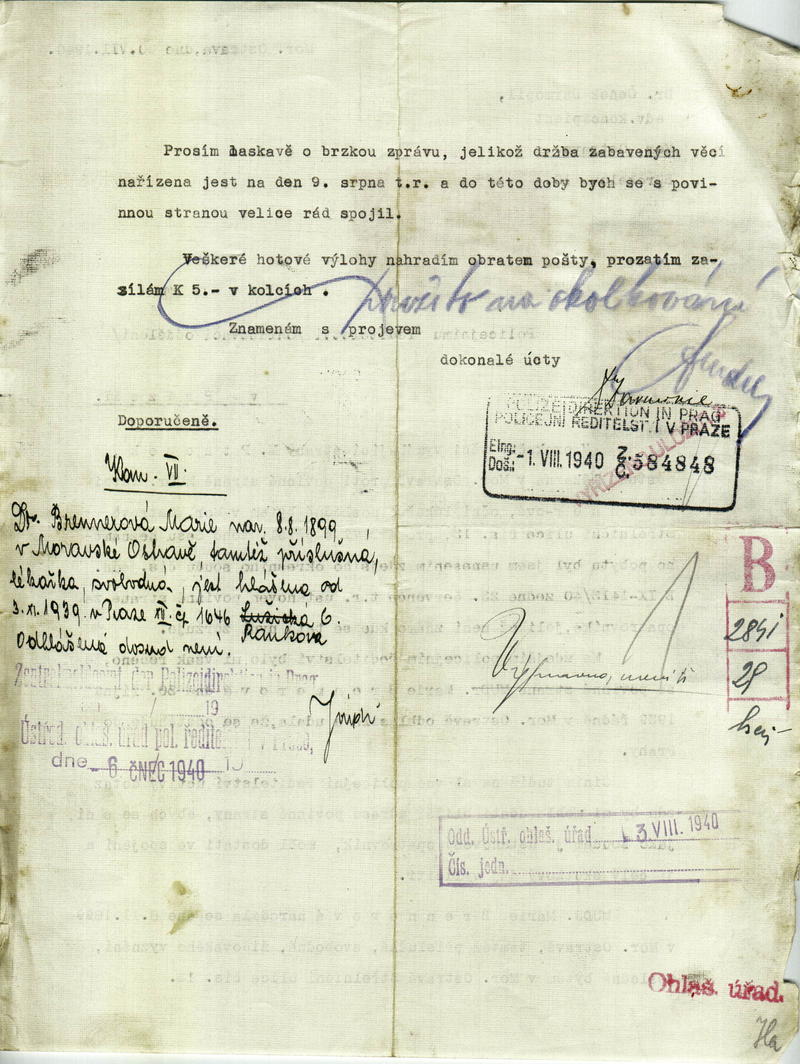 Prosím laskavě o brzkou zprávu, jelikož držba zabavených věcí
nařízena jest na den 9. srpna t.r. a do této doby bych se s povi-
nnou stranou velice rád spojil.
Veškeré hotové výlohy nahradím obratem pošty, prozatím za-
sílám K 5.- v kolcích .
použito na okolkování
Znamenám s projevem
dokonalé úcty
Doporučeně.
POLIZEIDIREKTION IN PRAG
POLICEJNÍ ŘEDITELSTVÍ V PRAZE
Eing.
Doš.: -1. VIII. 1940 Z. Č. 584848
Kan. VII.
Dr. Brennerová Marie nar. 8.8.1899
v Moravské Ostravě tamtéž příslušná,
lékařka, svobodná, jest hlášena od
3.XI.1939 v Praze XII. čp 1646 Lužická 6.
Rankova
Odhlášená dosud není.
Zentralmeldeamt der Polizeidirektion in Prag
19
Ústřed. ohlaš. úřad pol. ředitelství v Praze,
dne - 6 ČNEC 1940 19
B
2841
29
Odd. Ústř. ohlaš. úřad 3. VIII. 1940
Čís. jedn.
Ohlaš. úřad.